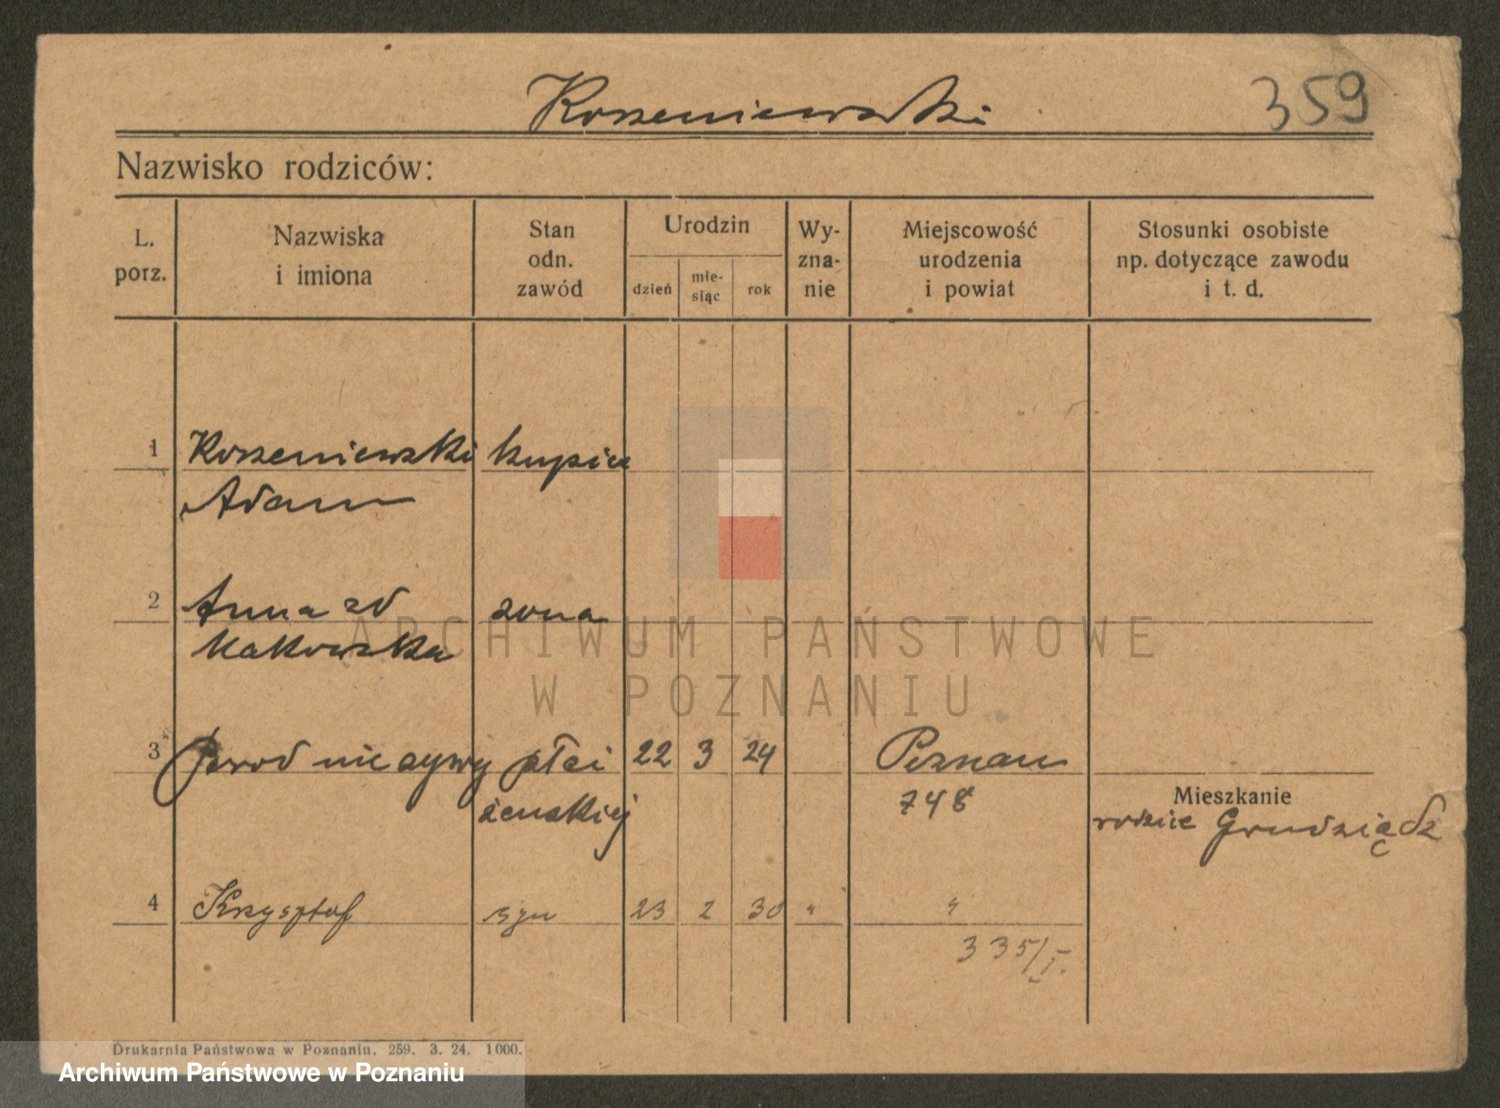 Korzeniewski
359
Nazwisko rodziców:
L. porz.
Nazwiska i imiona
Stan odn. zawód
Urodzin
dzień
mie-siąc
rok
Wy-zna-nie
Miejscowość urodzenia i powiat
Stosunki osobiste np. dotyczące zawodu i t. d.
1 Korzeniewski kupiec
Adam
2 Anna zd żona
Makowska
3 Poród nieżywy płci 22 3 24 Poznań
żeńskiej 748
Mieszkanie
rodzice Grudziądz
4 Krzysztof syn 23 2 30 " "
335/I.
Drukarnia Państwowa w Poznaniu. 259. 3. 24. 1000.
ARCHIWUM PAŃSTWOWE
W POZNANIU
Archiwum Państwowe w Poznaniu